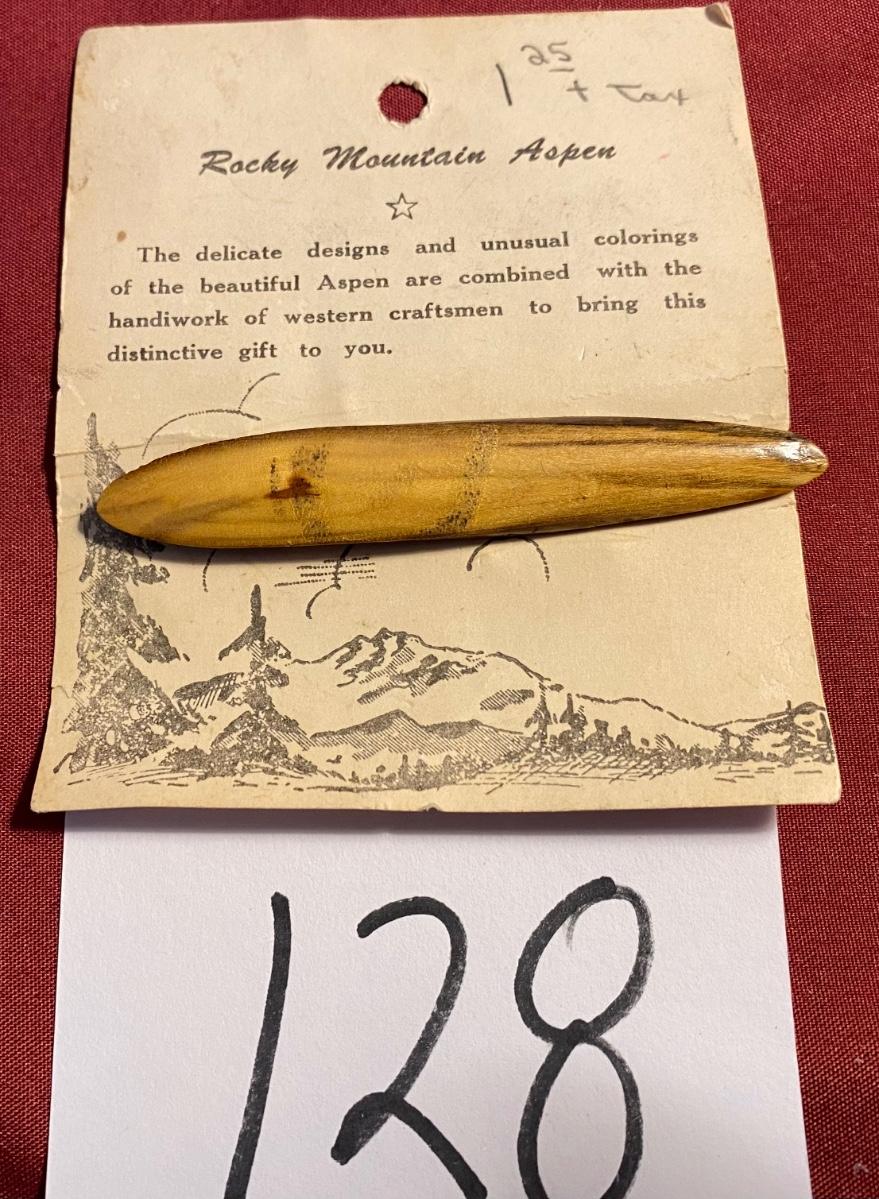 1 25 + Tax
Rocky Mountain Aspen
The delicate designs and unusual colorings
of the beautiful Aspen are combined with the
handiwork of western craftsmen to bring this
distinctive gift to you.
128